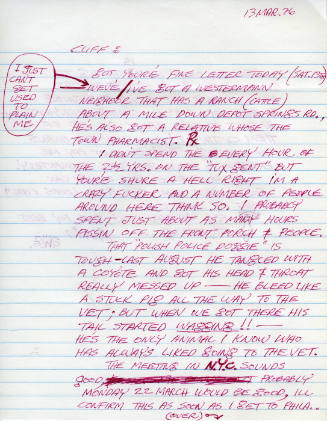 13 MAR. 76
CLIFF :
I JUST
CAN'T
GET
USED
TO
PLAIN
ME
GOT YOURE FINE LETTER TODAY (SAT. 13th)
WEVE/IVE GOT A WESTERMANN
NEIGHBOR THAT HAS A RANCH (CATTLE)
ABOUT A MILE DOWN DEPOT SPRINGS RD.,
HE'S ALSO GOT A RELATIVE WHOSE THE
TOWN PHARMACIST. Rx
I DIDN'T SPEND THE EVERY HOUR OF
THE 2½ YRS. ON THE "TUX BENT" BUT
YOUR'E SHURE A HELL RIGHT I'M A
CRAZY FUCKER AND A NUMBER OF PEOPLE
AROUND HERE THINK SO. I PROBABLY
SPENT JUST ABOUT AS MANY HOURS
PISSIN OFF THE FRONT PORCH & PEOPLE.
THAT "POLISH POLICE DOGGIE" IS
TOUGH - LAST AUGUST HE TANGLED WITH
A COYOTE AND GOT HIS HEAD & THROAT
REALLY MESSED UP — HE BLEED LIKE
A STUCK PIG ALL THE WAY TO THE
VET, BUT WHEN WE GOT THERE HIS
TAIL STARTED WAGGING!! —
HE'S THE ONLY ANIMAL I KNOW WHO
HAS ALWAYS LIKED GOING TO THE VET.
THE MEETING IN N.Y.C. SOUNDS
GOOD PROBABLY
MONDAY 22 MARCH WOULD BE GOOD, ILL
CONFIRM THIS AS SOON AS I GET TO PHILA..
(OVER)